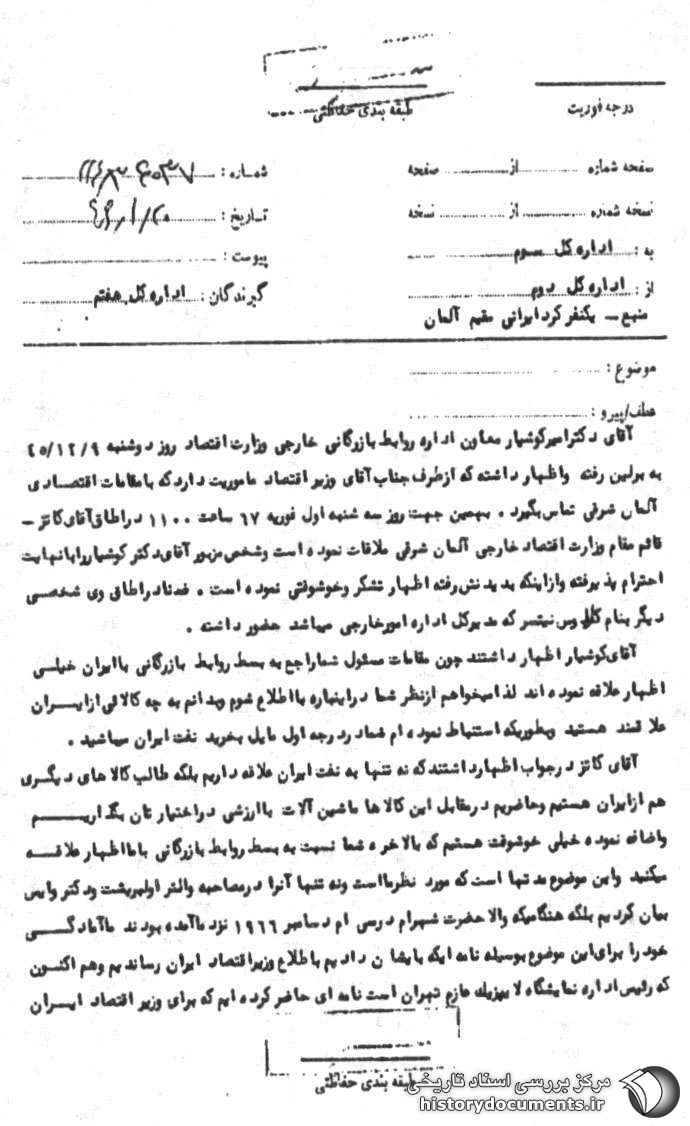 طبقه بندی حفاظتی
درجه فوریت
صفحه شماره از صفحه
شماره :
نسخه شماره از نسخه
تاریخ :
به : اداره کل سوم
پیوست :
از : اداره کل دوم
گیرندگان : اداره کل هفتم
منبع ـ یکنفر کرد ایرانی مقیم آلمان
موضوع :
عطف/پیرو :
آقای دکتر امیر کوشیار معاون اداره روابط بازرگانی خارجی وزارت اقتصاد روز دوشنبه ۴۵/۱۲/۹
به برلین رفته واظهار داشته که ازطرف جناب آقای وزیر اقتصاد ماموریت دارد که با مقامات اقتصادی
آلمان شرقی تماس بگیرد . بهمین جهت روز سه شنبه اول فوریه ۶۷ ساعت ۱۱۰۰ در اطاق آقای کانتز ـ
قائم مقام وزارت اقتصاد خارجی آلمان شرقی ملاقات نموده است وشخص مزبور آقای دکتر کوشیار را با نهایت
احترام پذیرفته وازاینکه بدیدنش رفته اظهار تشکر وخوشوقتی نموده است . ضمنا در اطاق وی شخصی
دیگر بنام کلاوس نیتسر که مدیر کل اداره امور خارجی میباشد حضور داشته .
آقای کوشیار اظهار داشتند چون مقامات مسئول شما راجع به بسط روابط بازرگانی با ایران خیلی
اظهار علاقه نموده اند لذا میخواهم ازنظر شما دراینباره با اطلاع شوم وبدانم به چه کالائی از ایران
علاقمند هستید وبطوریکه استنباط نموده ام شما در درجه اول مایل بخرید نفت ایران میباشید .
آقای کانتز درجواب اظهار داشتند که نه تنها به نفت ایران علاقه داریم بلکه طالب کالاهای دیگری
هم از ایران هستیم وحاضریم در مقابل این کالاها ماشین آلات باارزشی دراختیارتان بگذاریم
واضافه نموده خیلی خوشوقت هستیم که بالاخره شما نسبت به بسط روابط بازرگانی با ما اظهار علاقه
میکنید واین موضوع مدتها است که مورد نظر ما است ونه تنها آنرا درمصاحبه والتر اولبریشت ودکتر وایس
بیان کردیم بلکه هنگامیکه والا حضرت شهرام درسی ام دسامبر ۱۹۶۶ نزد ما آمده بودند ما آمادگی
خود را برای این موضوع بوسیله نامه ایکه بایشان دادیم باطلاع وزیر اقتصاد ایران رساندیم وهم اکنون
که رئیس اداره نمایشگاه لایپزیک عازم تهران است نامه ای حاضر کرده ایم که برای وزیر اقتصاد ایران
طبقه بندی حفاظتی
مرکز بررسی اسناد تاریخی
historydocuments.ir